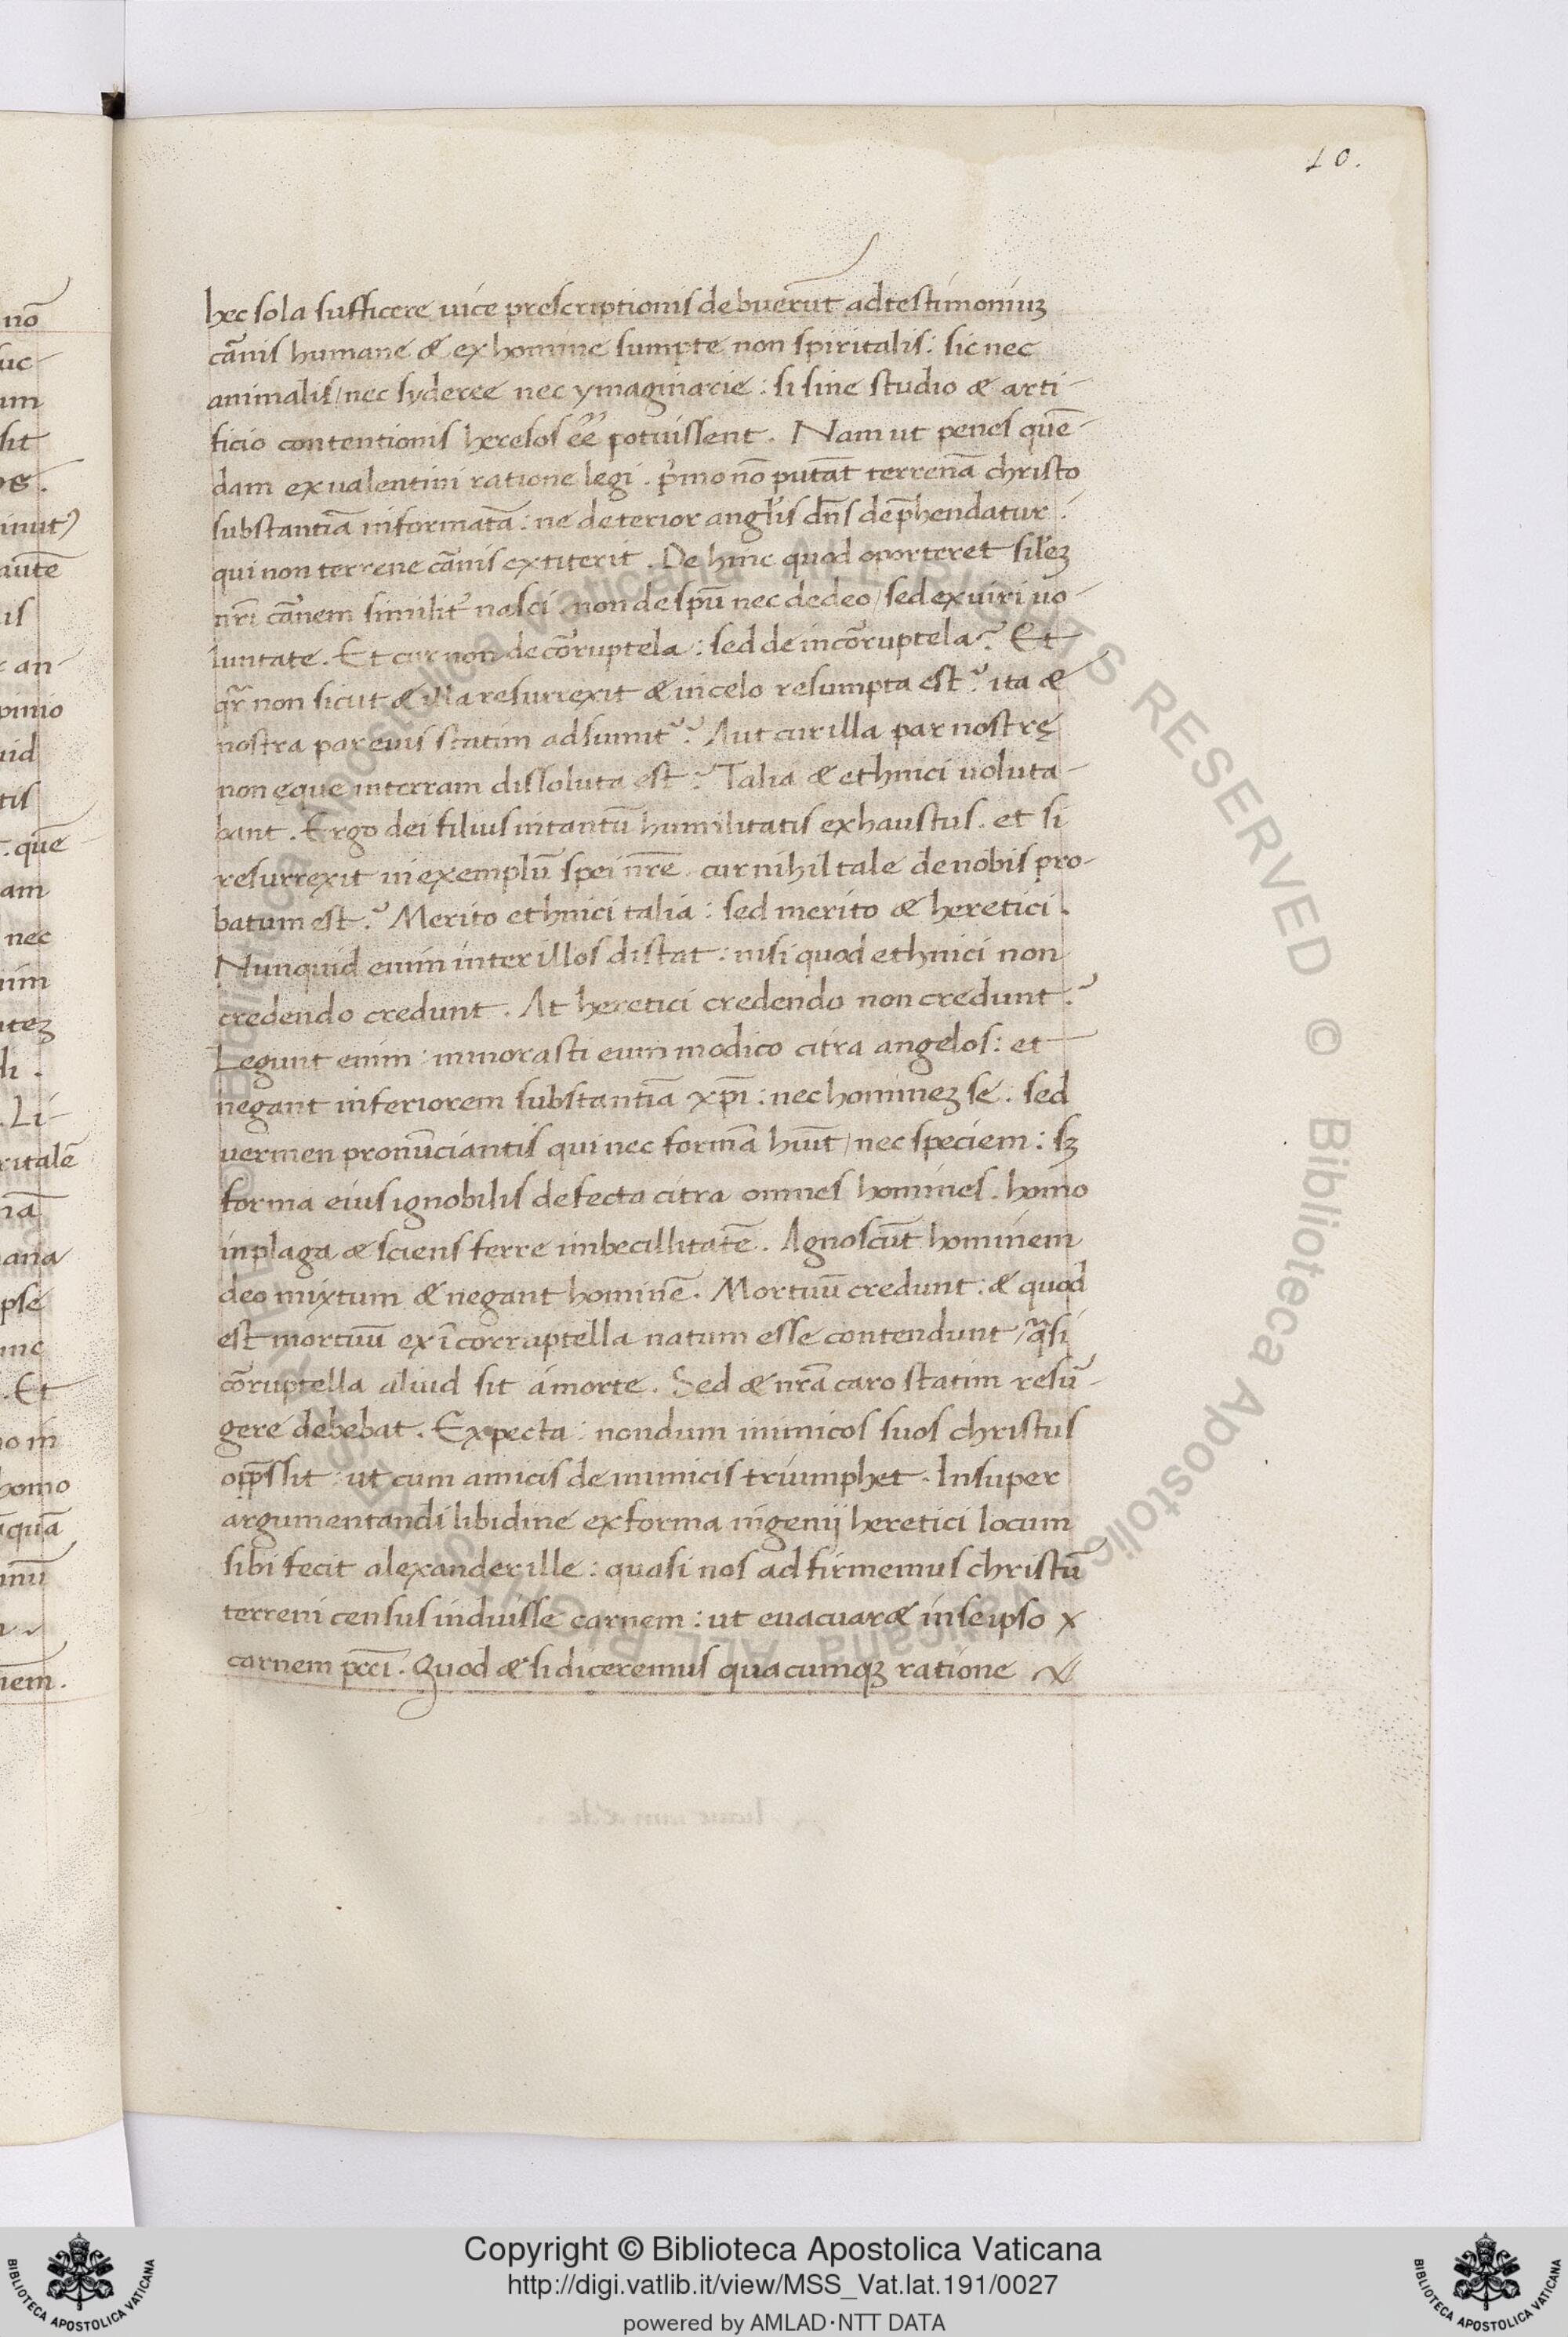 10.
hec sola sufficere uice prescriptionis debuerūt ad testimoniuꝫ
cārnis humane & ex homine sumpte non spiritalis: sic nec
animalis/ nec syderee nec ymaginarie: si sine studio & arti-
ficio contentionis heresos ēē potuissent. Nam ut penes quē-
dam ex ualentini ratione legi. p̄mo nō putāt terrenā christo
substantiā informatā: ne deterior angl̄is dn̄s dep̄hendatur:
qui non terrene cārnis extiterit. De hinc quod oporteret sil̄eꝫ
nr̄i cārnem similit᷒ nasci. non de spū nec de deo/ sed ex uiri uo-
luntate. Et cur non de cōrruptela: sed de incōrruptela? Et
qr̄ non sicut & illa resurrexit & in celo resumpta est? ita &
nostra par euis statim adsumit᷒? Aut cur illa par nostrę
non ęque in terram dissoluta est? Talia & ethnici uoluta-
bant. Ergo dei filius in tantū humilitatis exhaustus. et si
resurrexit in exemplū spei nr̄e. cur nihil tale de nobis pro-
batum est? Merito ethnici talia: sed merito & heretici.
Nunquid enim inter illos distat: nisi quod ethnici non
credendo credunt. At heretici credendo non credunt?
Legunt enim: minorasti eum modico citra angelos: et
negant inferiorem substantiā xp̄i: nec homineꝫ se. sed
uermen pronūnciantis qui nec formā hiūt/ nec speciem: sꝫ
forma eius ignobilis defecta citra omnes homines. homo
in plaga & sciens ferre imbecillitatē. Agnoscūt hominem
deo mixtum & negant hominē. Mortuū credunt: & quod
est mortuū ex īcorruptella natum esse contendunt/ q̄si
cōrruptella aliud sit á morte. Sed & nr̄a caro statim resū-
gere debebat. Expecta: nondum inimicos suos christus
opp̄ssit: ut cum amicis de inimicis triumphet. Insuper
argumentandi libidine ex forma ingenij heretici locum
sibi fecit alexander ille: quasi nos adfirmemus christū
terreni census induisse carnem: ut euacuar& in se ipso x
carnem pcc̄i. Quod & si diceremus quacumqꝫ ratione
Copyright © Biblioteca Apostolica Vaticana
http://digi.vatlib.it/view/MSS_Vat.lat.191/0027
powered by AMLAD·NTT DATA